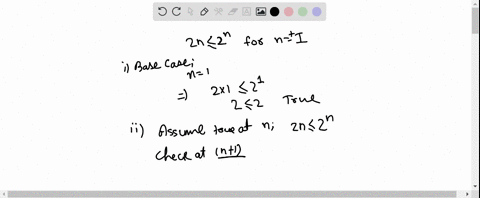 2n ≤ 2ⁿ for n=⁺I
i) Base Case;
n=1
⇒) 2×1 ≤ 2¹
2 ≤ 2 True
ii) Assume true at n; 2n ≤ 2ⁿ
Check at (n+1)